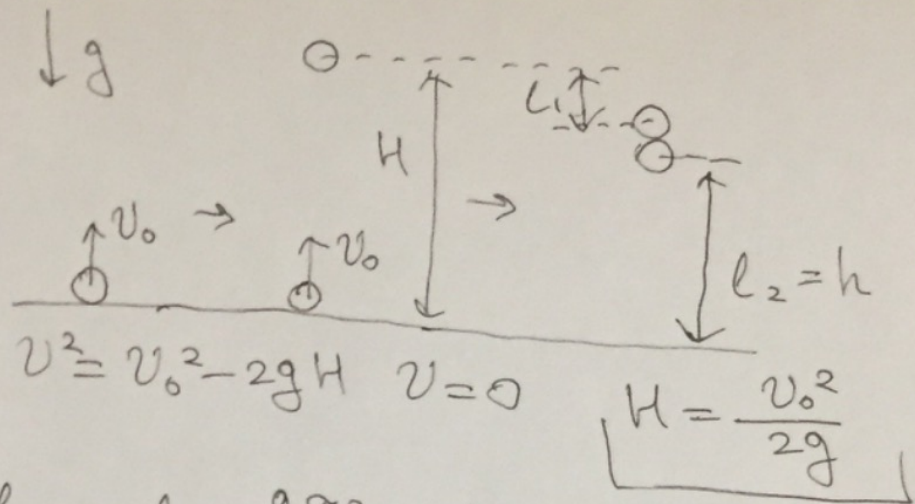 ↓ g
l₁
H
→
→
v₀
v₀
l₂ = h
v² = v₀² - 2gH v = 0
H = v₀² / 2g